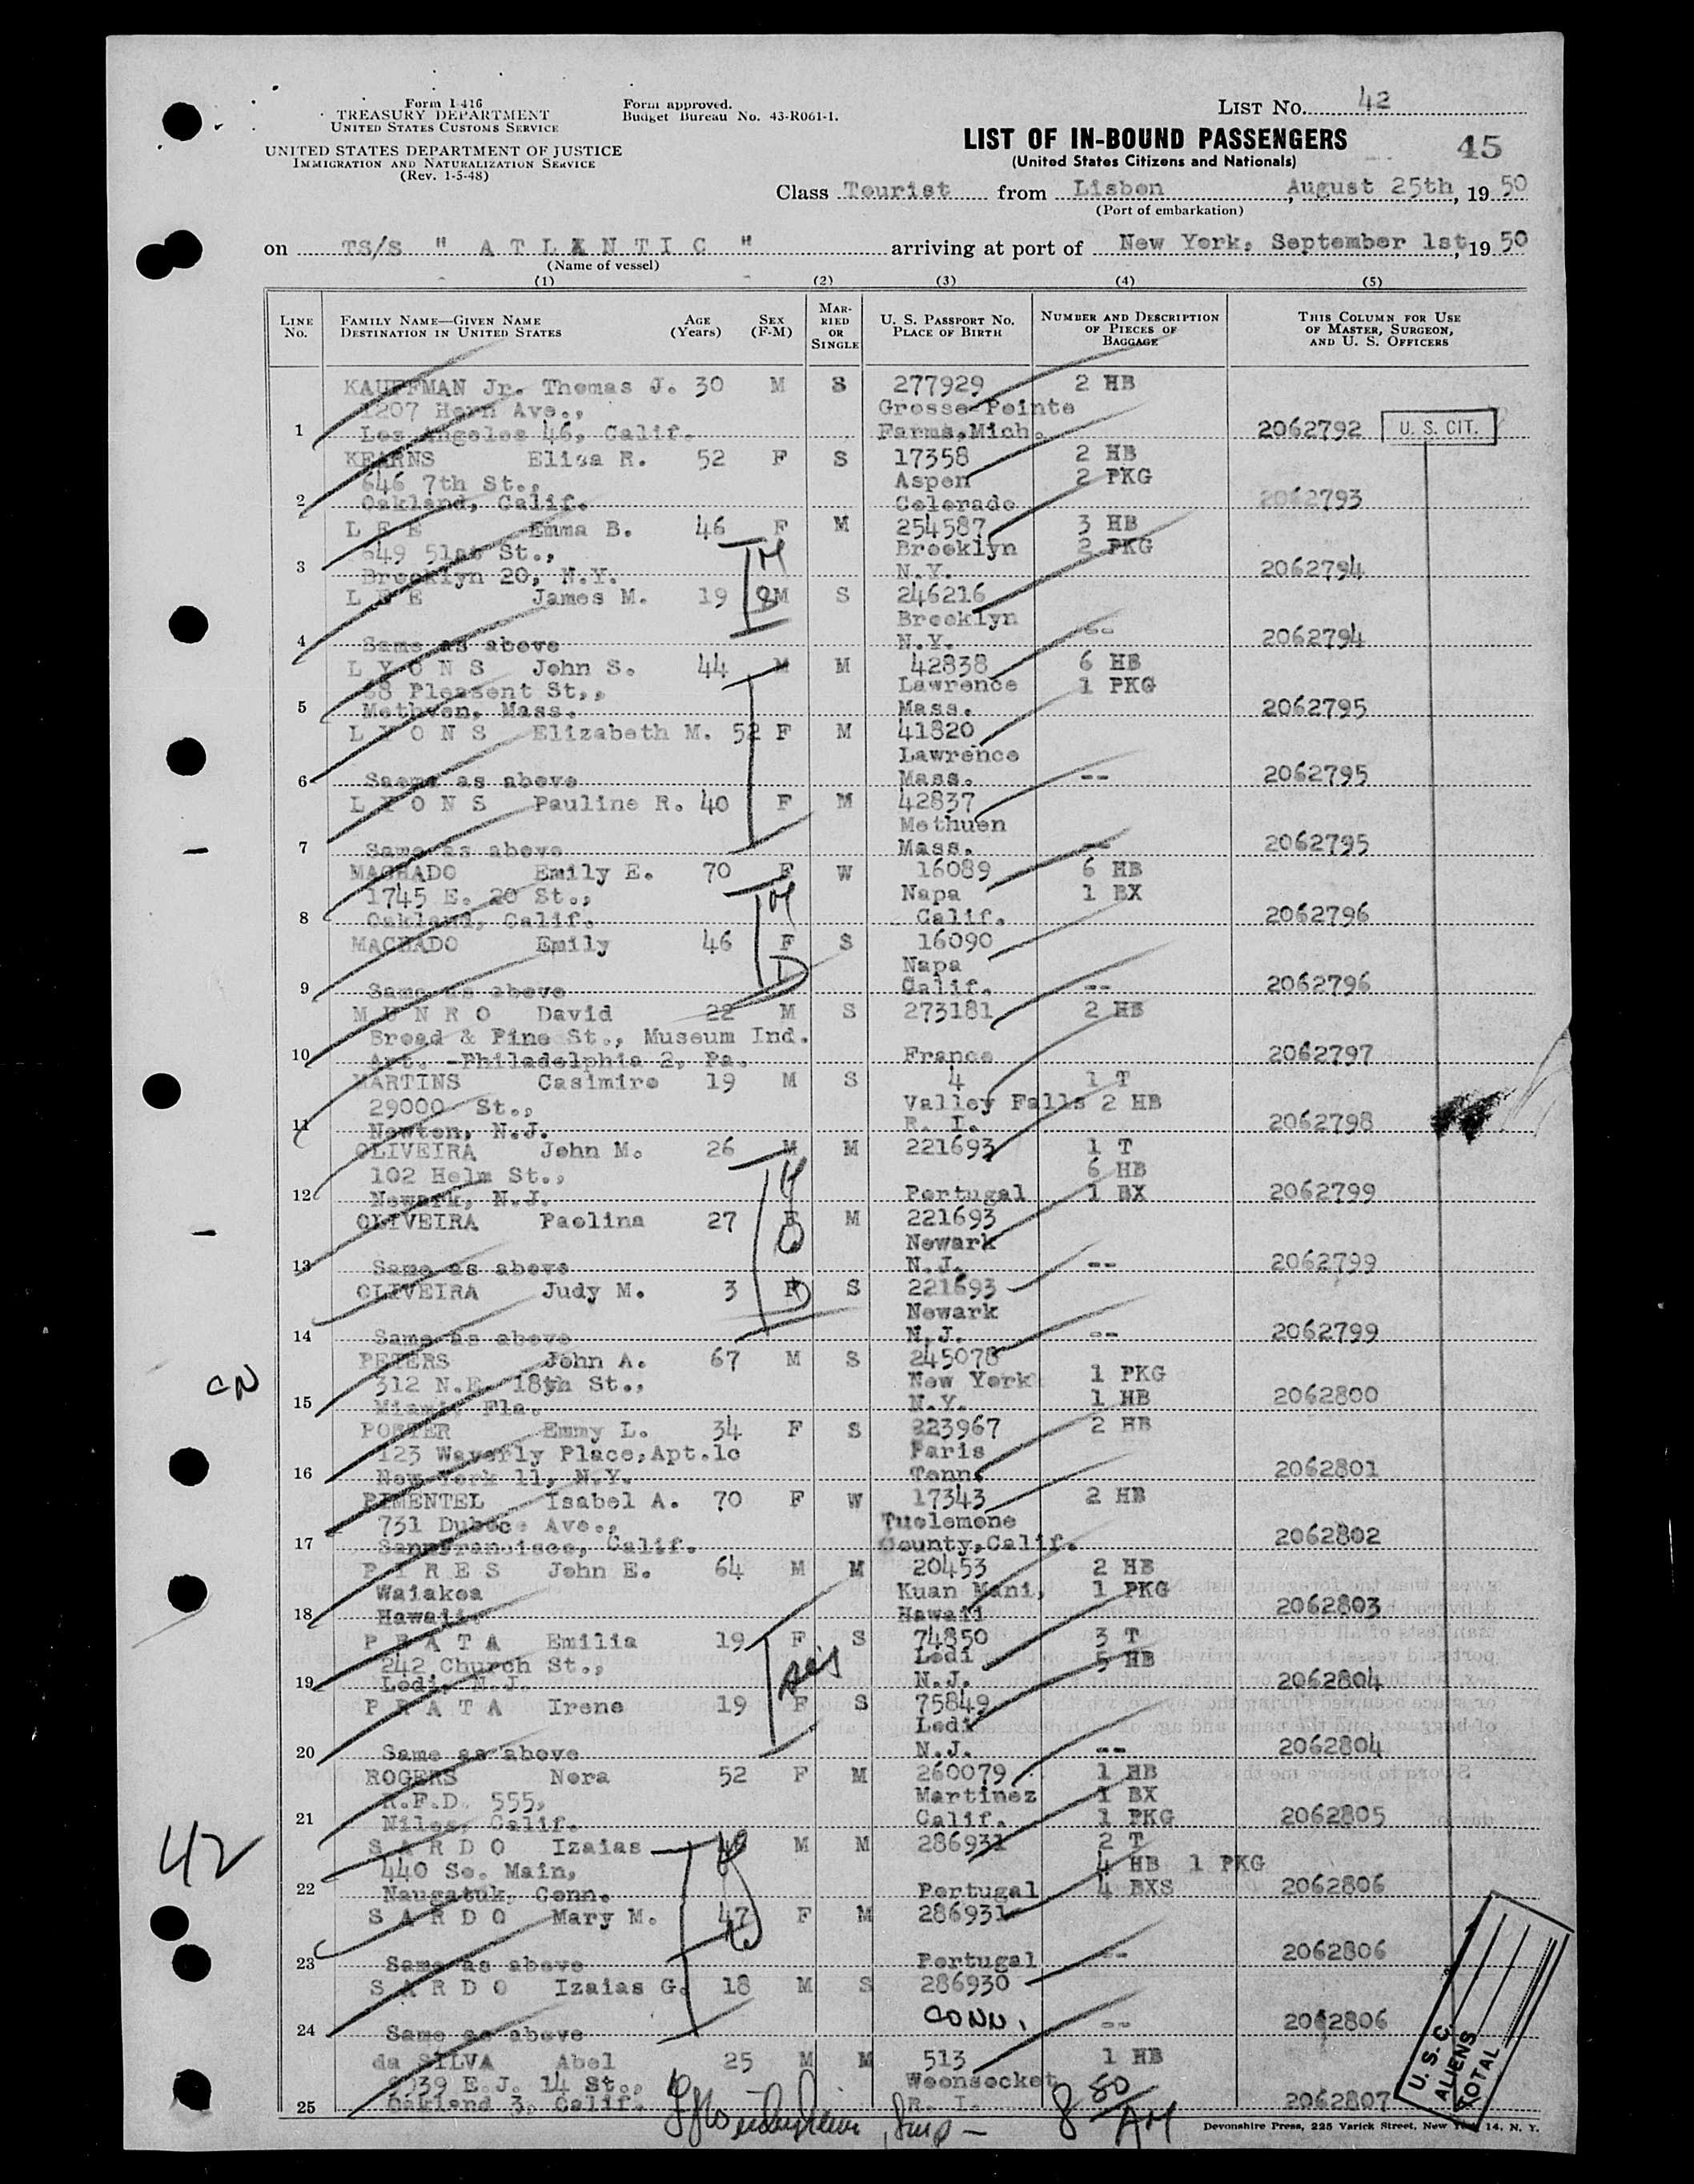 Form I-416
TREASURY DEPARTMENT
UNITED STATES CUSTOMS SERVICE
UNITED STATES DEPARTMENT OF JUSTICE
IMMIGRATION AND NATURALIZATION SERVICE
(Rev. 1-5-48)
Form approved.
Budget Bureau No. 43-R061-1.
LIST No. 42
LIST OF IN-BOUND PASSENGERS
(United States Citizens and Nationals)
45
Class Tourist from Lisbon, August 25th, 1950
(Port of embarkation)
on TS/S " A T L A N T I C " arriving at port of New York, September 1st, 1950
(Name of vessel)
(1) (2) (3) (4) (5)
LINE No. FAMILY NAME—GIVEN NAME DESTINATION IN UNITED STATES AGE (Years) SEX (F-M) MARRIED OR SINGLE U. S. PASSPORT No. PLACE OF BIRTH NUMBER AND DESCRIPTION OF PIECES OF BAGGAGE THIS COLUMN FOR USE OF MASTER, SURGEON, AND U. S. OFFICERS
KAUFFMAN Jr. Thomas J. 30 M S 277929 2 HB
1207 Horn Ave., Grosse Pointe
1 Los Angeles 46, Calif. Farms, Mich. 2062792 U. S. CIT.
KEARNS Elisa R. 52 F S 17358 2 HB
646 7th St., Aspen 2 PKG
2 Oakland, Calif. Colorado 2062793
L E E Emma B. 46 F M 254587 3 HB
649 51st St., Brooklyn 2 PKG
3 Brooklyn 20, N.Y. N.Y. 2062794
L E E James M. 19 M S 246216
Brooklyn
4 Same as above N.Y. -- 2062794
L Y O N S John S. 44 M M 42838 6 HB
68 Pleasent St., Lawrence 1 PKG
5 Methven, Mass. Mass. 2062795
L Y O N S Elizabeth M. 52 F M 41820
Lawrence
6 Saeme as above Mass. -- 2062795
L Y O N S Pauline R. 40 F M 42837
Methuen
7 Same as above Mass. -- 2062795
MACHADO Emily E. 70 F W 16089 6 HB
1745 E. 20 St., Napa 1 BX
8 Oakland, Calif. Calif. 2062796
MACHADO Emily 46 F S 16090
Napa
9 Same as above Calif. -- 2062796
M U N R O David 22 M S 273181 2 HB
Broad & Pine St., Museum Ind.
10 Art. -Philadelphia 2, Pa. France 2062797
MARTINS Casimiro 19 M S 4 1 T
29000 St., Valley Falls 2 HB
11 Newton, N.J. R. I. 2062798
OLIVEIRA John M. 26 M M 221693 1 T
102 Helm St., 6 HB
12 Newark, N.J. Portugal 1 BX 2062799
OLIVEIRA Paolina 27 F M 221693
Newark
13 Same as above N.J. -- 2062799
OLIVEIRA Judy M. 3 F S 221693
Newark
14 Same as above N.J. -- 2062799
PETERS John A. 67 M S 245078
312 N.E. 18th St., New York 1 PKG
15 Miami, Fla. N.Y. 1 HB 2062800
PORTER Emmy L. 34 F S 223967 2 HB
123 Waverly Place, Apt.1c Paris
16 New York 11, N.Y. Tenn. 2062801
PIMENTEL Isabel A. 70 F W 17343 2 HB
731 Duboce Ave., Tuolemone
17 San Francisco, Calif. County, Calif. 2062802
P I R E S John E. 64 M M 20453 2 HB
Waiakea Kuan Mani, 1 PKG
18 Hawaii Hawaii 2062803
P R A T A Emilia 19 F S 74850 3 T
242 Church St., Lodi 5 HB
19 Lodi, N.J. N.J. 2062804
P R A T A Irene 19 F S 75849
Lodi
20 Same as above N.J. -- 2062804
ROGERS Nora 52 F M 260079 1 HB
R.F.D. 555, Martinez 1 BX
21 Niles, Calif. Calif. 1 PKG 2062805
S A R D O Izaias M M 286931 2 T
440 So. Main, 4 HB 1 PKG
22 Naugatuk, Conn. Portugal 4 BXS 2062806
S A R D O Mary M. 47 F M 286931
23 Same as above Portugal -- 2062806
S A R D O Izaias G. 18 M S 286930
24 Same as above CONN. -- 2062806
da SILVA Abel 25 M M 513 1 HB
E.J. 14 St., Woonsocket
25 Oakland 3, Calif. R. I. 2062807
CN
42
sis
8 50 AM
U. S. C.
ALIENS
TOTAL
Devonshire Press, 225 Varick Street, New York 14, N. Y.